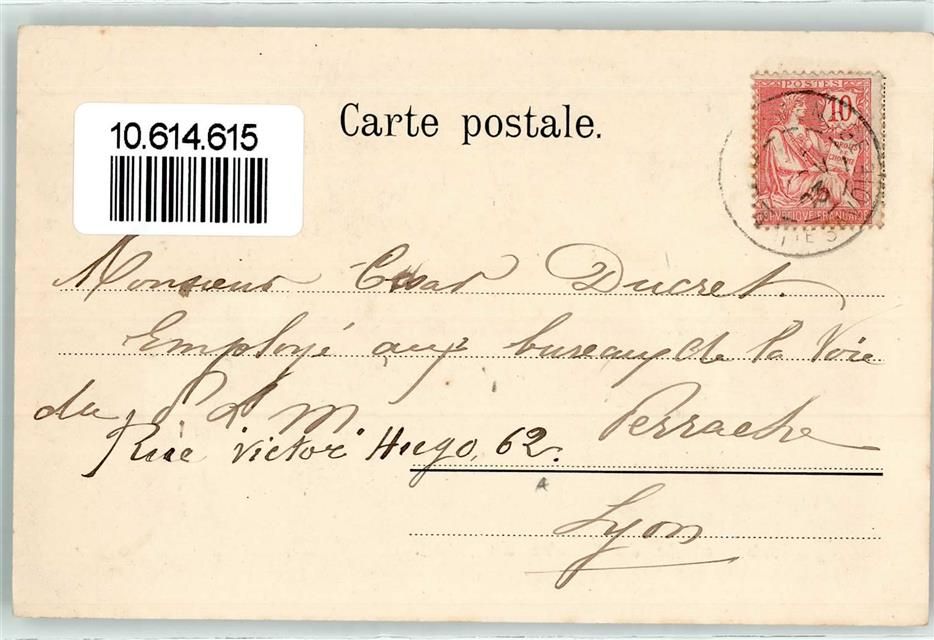 10.614.615
Carte postale.
POSTES
10
REPUBLIQUE FRANÇAISE
Monsieur César Ducret.
Employé aux bureaux de la Voie
du P L M Perrache
Rue "Victor" Hugo, 62.
Lyon